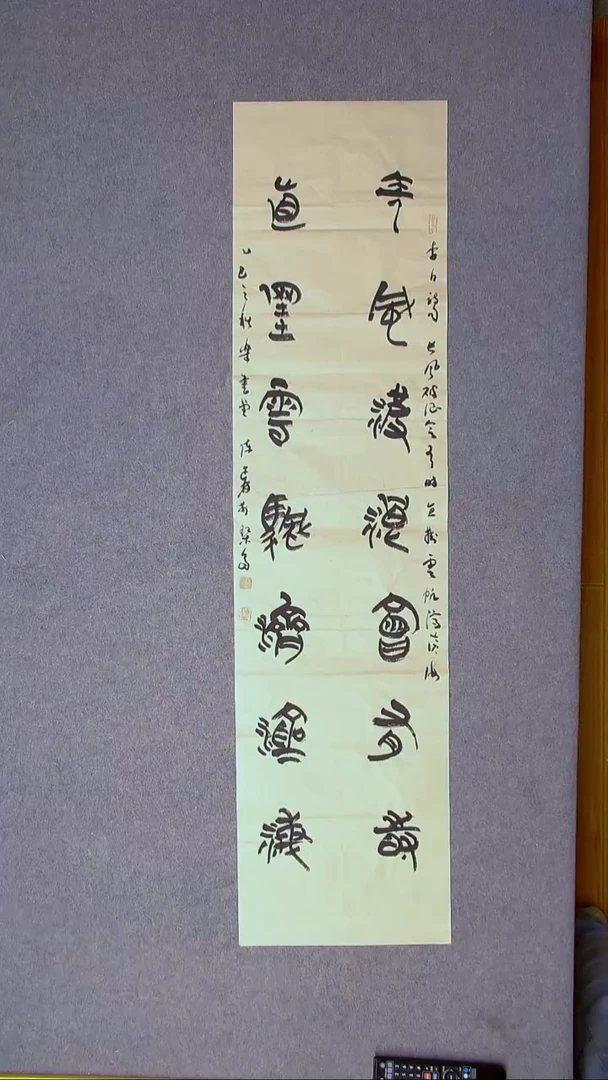 李白詩長風破浪会有時直掛雲帆濟滄海
長風破浪會有時
直掛雲帆濟滄海
乙巳之秋